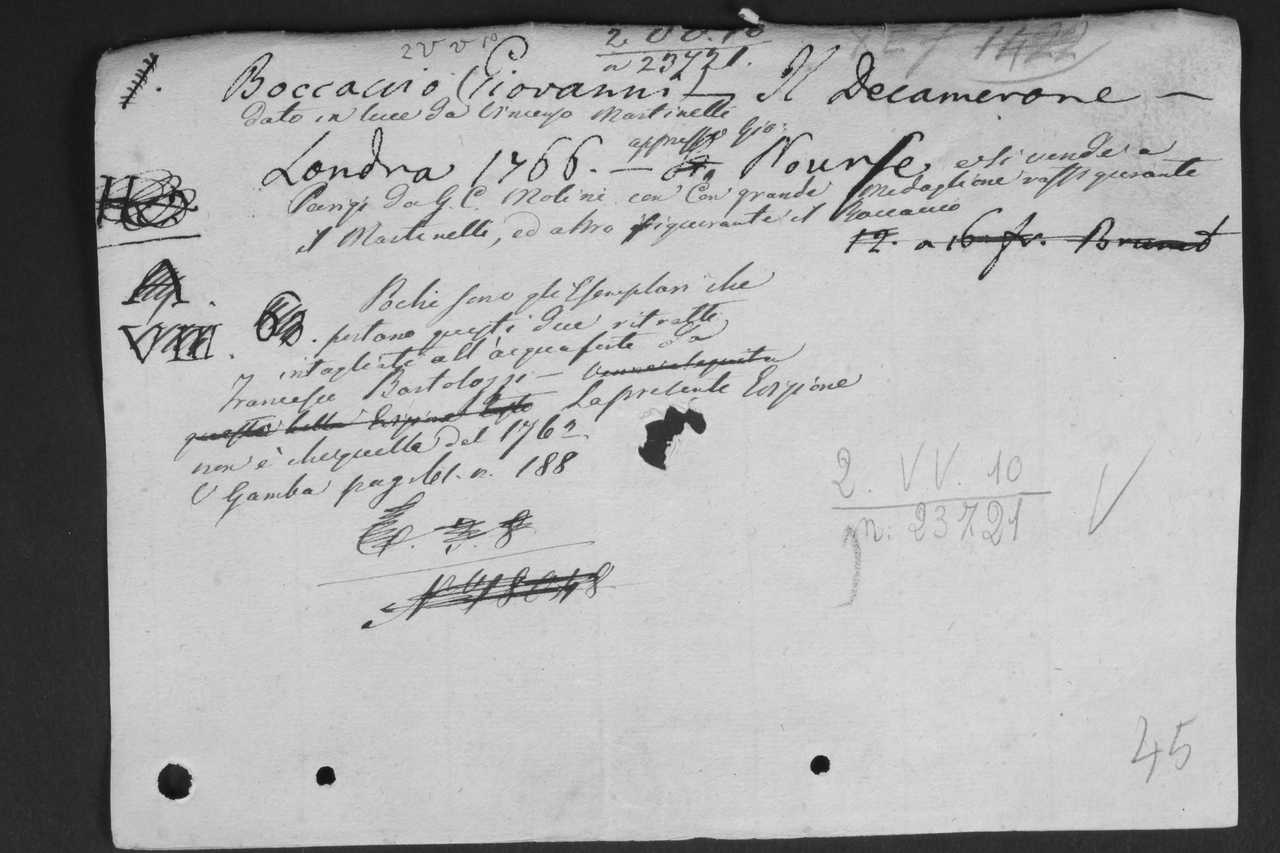 2 V V 10
2. VV. 10
n 23721.
1422
Boccaccio Giovanni — Il Decamerone —
dato in luce da Vincenzo Martinelli
Londra 1766. — appresso Gio: Nourse, e si vende a
Parigi da G. C. Molini con Con grande Medaglione raffigurante
il Martinelli, ed altro figurante il Boccaccio
12. a 16 fr. Brunet
VIII. 60. Pochi sono gli Esemplari che
portano questi due ritratti
intagliati all'acquaforte da
Francesco Bartolozzi —
questa bella Edizione La presente Edizione
non è che quella del 1762
V Gamba pag. 61. n. 188
8
N° 48048
2. VV. 10
n. 23721
45